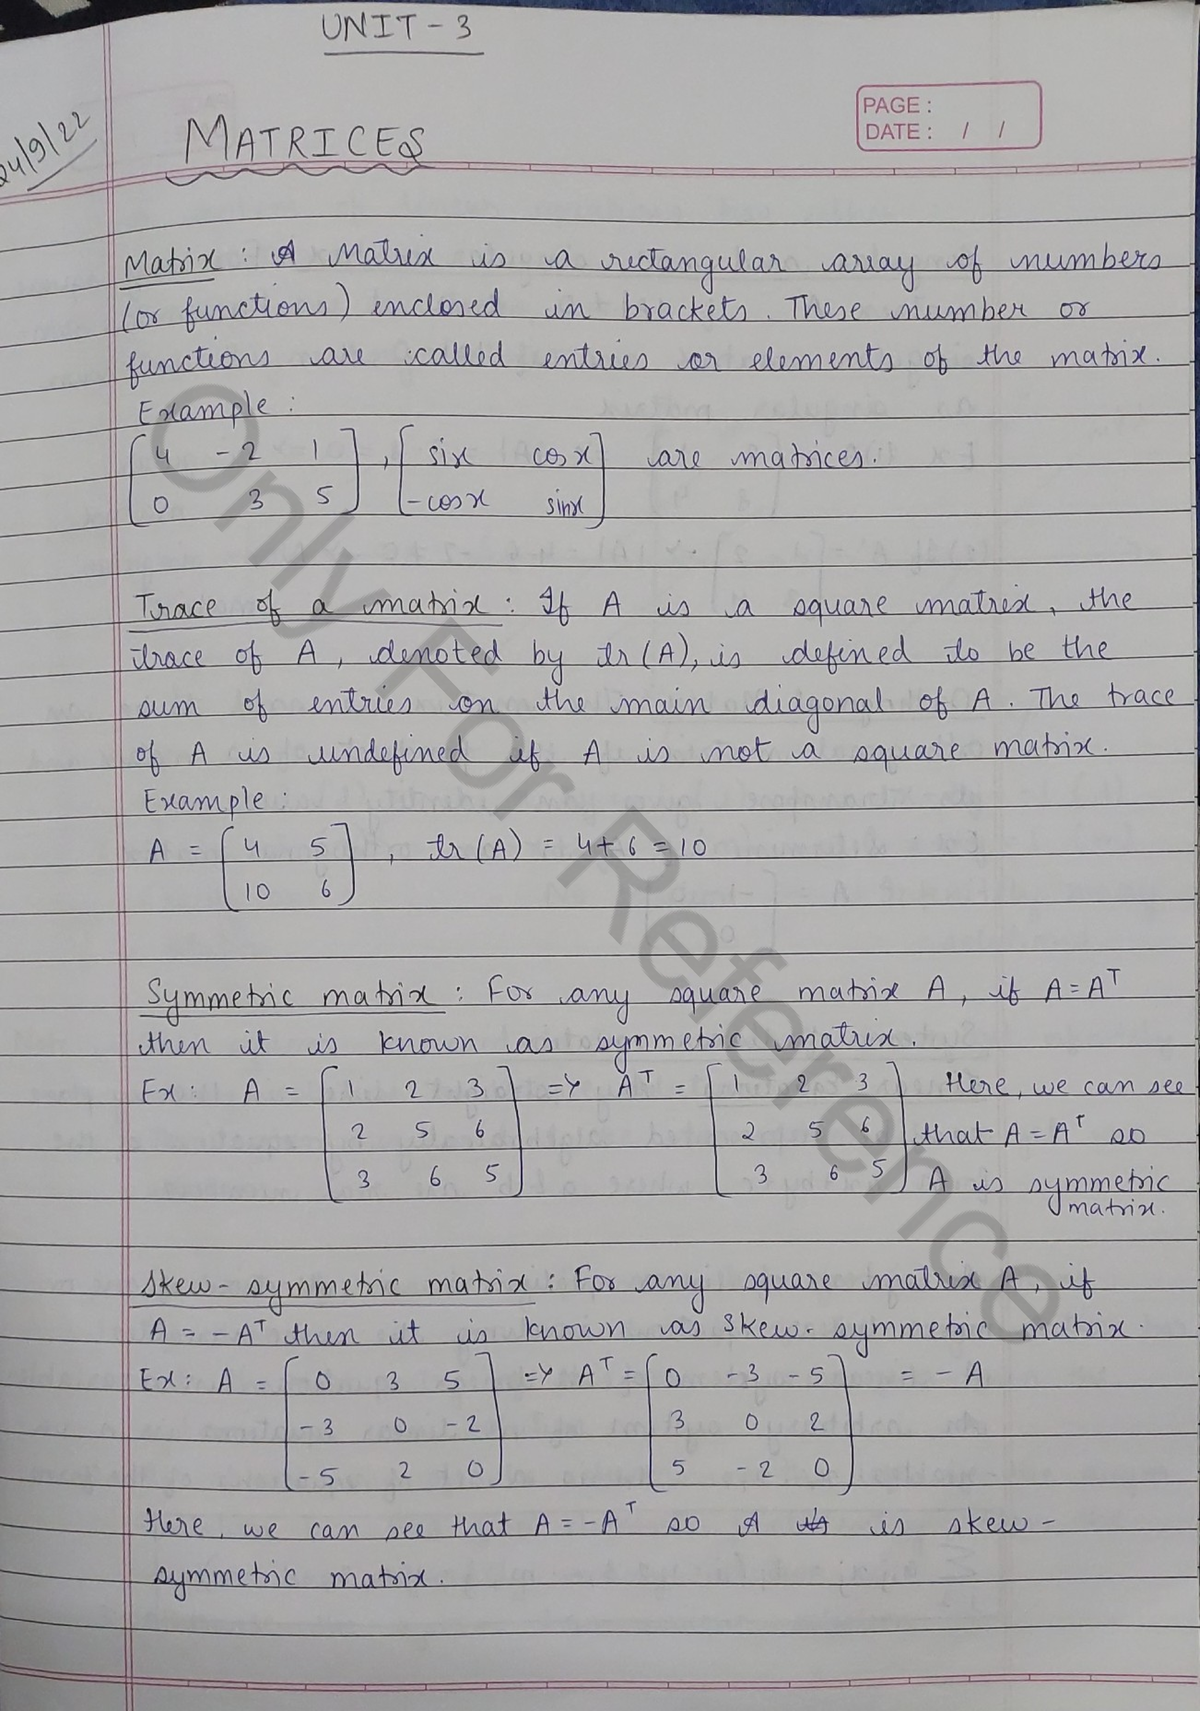 UNIT - 3
PAGE :
DATE : / /
24/9/22
MATRICES
Matrix : A Matrix is a rectangular array of numbers
(or functions) enclosed in brackets. These number or
functions are called entries or elements of the matrix.
Example :
[4 -2 1] , [six cosx] are matrices.
[0 3 5] [-cosx sinx]
Trace of a matrix : If A is a square matrix, the
trace of A, denoted by tr(A), is defined to be the
sum of entries on the main diagonal of A. The trace
of A is undefined if A is not a square matrix.
Example :
A = [4 5] , tr(A) = 4+6 = 10
[10 6]
Symmetric matrix : For any square matrix A, if A = Aᵀ
then it is known as symmetric matrix.
Ex : A = [1 2 3] => Aᵀ = [1 2 3] Here, we can see
[2 5 6] [2 5 6] that A = Aᵀ so
[3 6 5] [3 6 5] A is symmetric
matrix.
Skew - symmetric matrix : For any square matrix A, if
A = - Aᵀ then it is known as skew - symmetric matrix.
Ex : A = [0 3 5] => Aᵀ = [0 -3 -5] = - A
[-3 0 -2] [3 0 2]
[-5 2 0] [5 -2 0]
Here, we can see that A = - Aᵀ so A is skew -
symmetric matrix.
Only For Reference